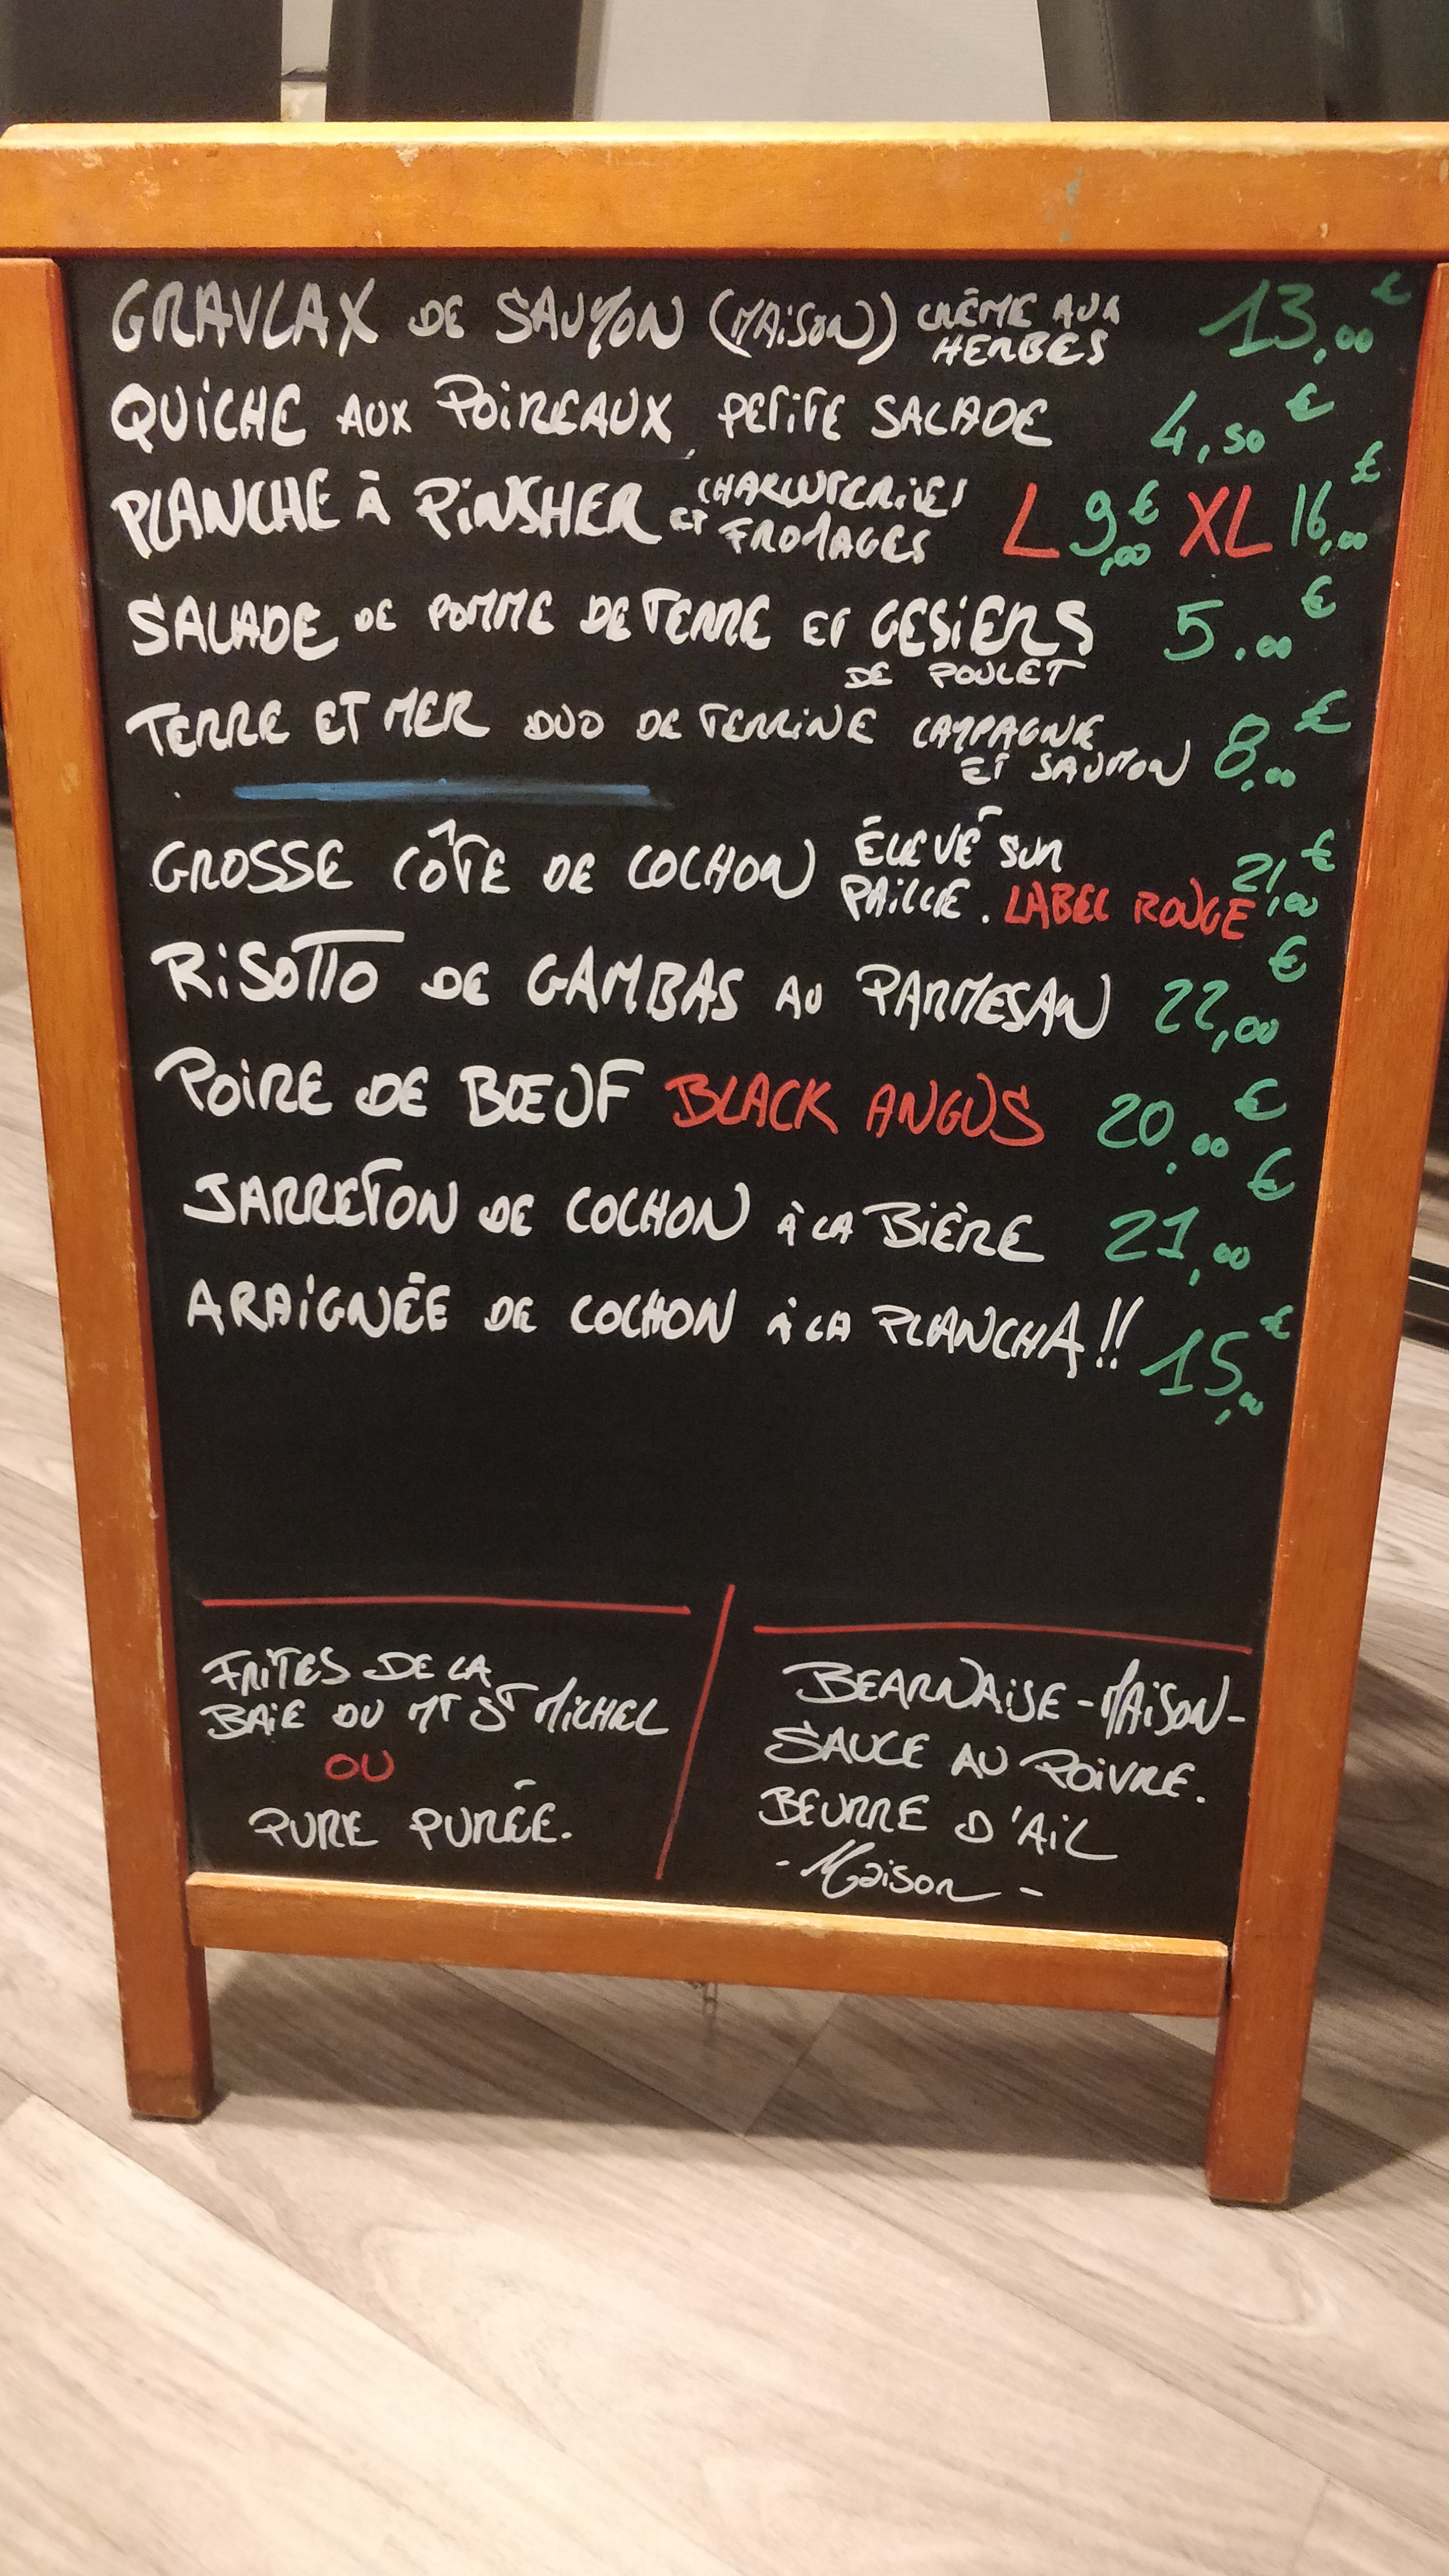 GRAVLAX DE SAUMON (MAISON) CRÈME AUX HERBES 13,00€
QUICHE AUX POIREAUX, PETITE SALADE 4,50€
PLANCHE À PINSHER CHARCUTERIES ET FROMAGES L 9,00€ XL 16,00€
SALADE DE POMME DE TERRE ET GESIERS DE POULET 5.00€
TERRE ET MER DUO DE TERRINE CAMPAGNE ET SAUMON 8,00€
GROSSE CÔTE DE COCHON ÉLEVÉ SUR PAILLE. LABEL ROUGE 21,00€
RISOTTO DE GAMBAS AU PARMESAN 22,00€
POIRE DE BŒUF BLACK ANGUS 20,00€
JARRETON DE COCHON À LA BIÈRE 21,00€
ARAIGNÉE DE COCHON À LA PLANCHA!! 15,00€
FRITES DE LA
BAIE DU MT ST MICHEL
OU
PURE PURÉE.
BEARNAISE -MAISON-
SAUCE AU POIVRE.
BEURRE D'AIL
-Maison-